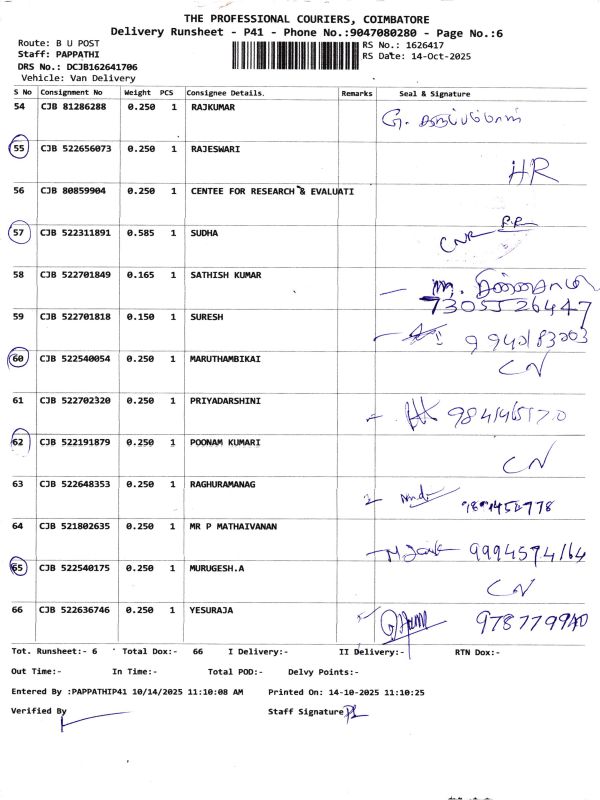 THE PROFESSIONAL COURIERS, COIMBATORE
Delivery Runsheet - P41 - Phone No.:9047080280 - Page No.:6
Route: B U POST
Staff: PAPPATHI
DRS No.: DCJB162641706
Vehicle: Van Delivery
RS No.: 1626417
RS Date: 14-Oct-2025
S No Consignment No Weight PCS Consignee Details. Remarks Seal & Signature
54 CJB 81286288 0.250 1 RAJKUMAR
55 CJB 522656073 0.250 1 RAJESWARI HR
56 CJB 80859904 0.250 1 CENTEE FOR RESEARCH & EVALUATI
57 CJB 522311891 0.585 1 SUDHA CNR
58 CJB 522701849 0.165 1 SATHISH KUMAR
7305526447
59 CJB 522701818 0.150 1 SURESH
60 CJB 522540054 0.250 1 MARUTHAMBIKAI CN
61 CJB 522702320 0.250 1 PRIYADARSHINI
62 CJB 522191879 0.250 1 POONAM KUMARI CN
63 CJB 522648353 0.250 1 RAGHURAMANAG
64 CJB 521802635 0.250 1 MR P MATHAIVANAN 9994574164
65 CJB 522540175 0.250 1 MURUGESH.A CN
66 CJB 522636746 0.250 1 YESURAJA
Tot. Runsheet:- 6 Total Dox:- 66 I Delivery:- II Delivery:- RTN Dox:-
Out Time:- In Time:- Total POD:- Delvy Points:-
Entered By :PAPPATHIP41 10/14/2025 11:10:08 AM Printed On: 14-10-2025 11:10:25
Verified By Staff Signature